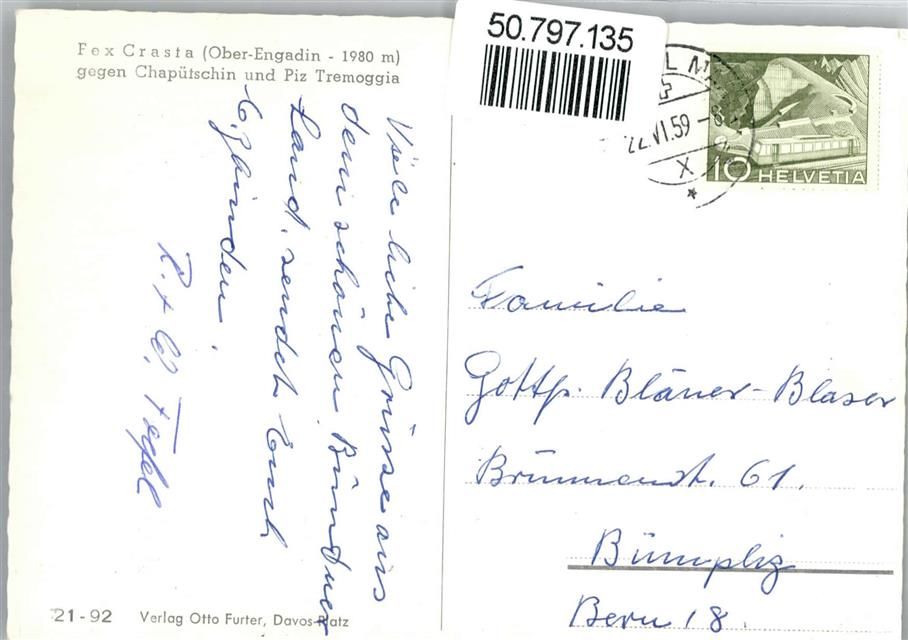 Fex Crasta (Ober-Engadin - 1980 m)
gegen Chapütschin und Piz Tremoggia
50.797.135
22.VI.59-8
X
10 HELVETIA
Viele liebe Grüsse aus
dem schönen Bündner
Land, sendet Euch
R. + E.
Familie
Gottfr. Bläuer-Blaser
Brünnenst. 61.
Bümpliz
Bern 18.
21-92 Verlag Otto Furter, Davos-Platz